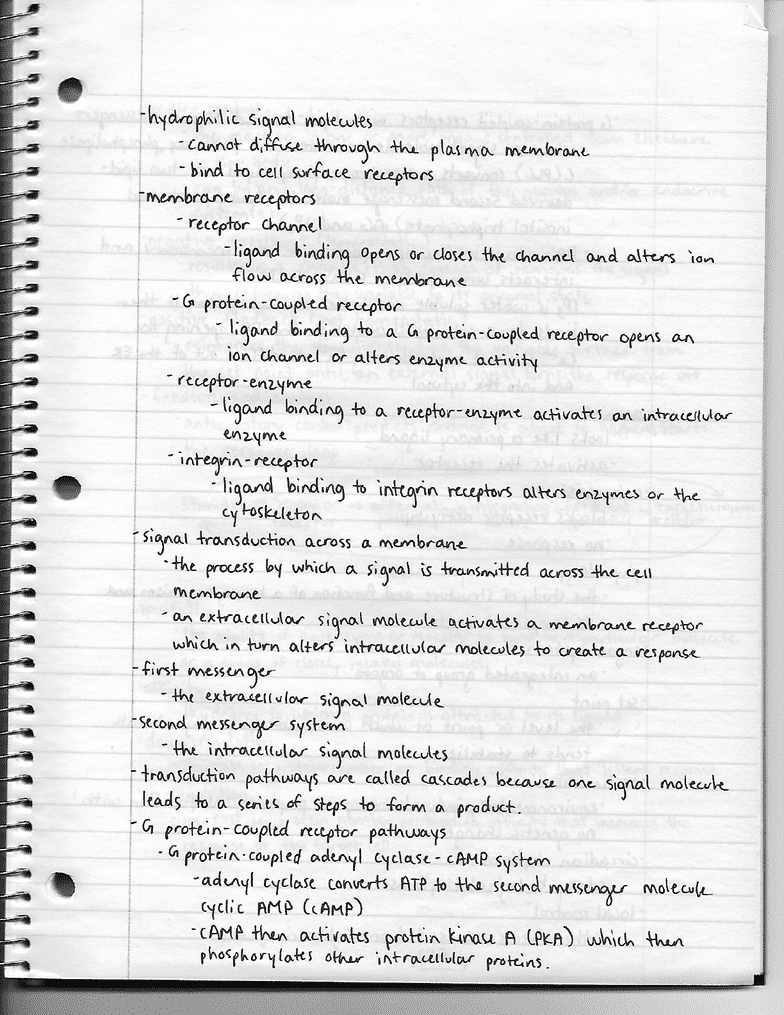 -hydrophilic signal molecules
-cannot diffuse through the plasma membrane
-bind to cell surface receptors
-membrane receptors
-receptor channel
-ligand binding opens or closes the channel and alters ion
flow across the membrane
-G protein-coupled receptor
-ligand binding to a G protein-coupled receptor opens an
ion channel or alters enzyme activity
-receptor-enzyme
-ligand binding to a receptor-enzyme activates an intracellular
enzyme
-integrin-receptor
-ligand binding to integrin receptors alters enzymes or the
cytoskeleton
-signal transduction across a membrane
-the process by which a signal is transmitted across the cell
membrane
-an extracellular signal molecule activates a membrane receptor
which in turn alters intracellular molecules to create a response
-first messenger
-the extracellular signal molecule
-second messenger system
-the intracellular signal molecules
-transduction pathways are called cascades because one signal molecule
leads to a series of steps to form a product.
-G protein-coupled receptor pathways
-G protein-coupled adenyl cyclase-cAMP system
-adenyl cyclase converts ATP to the second messenger molecule
cyclic AMP (cAMP)
-cAMP then activates protein kinase A (PKA) which then
phosphorylates other intracellular proteins.